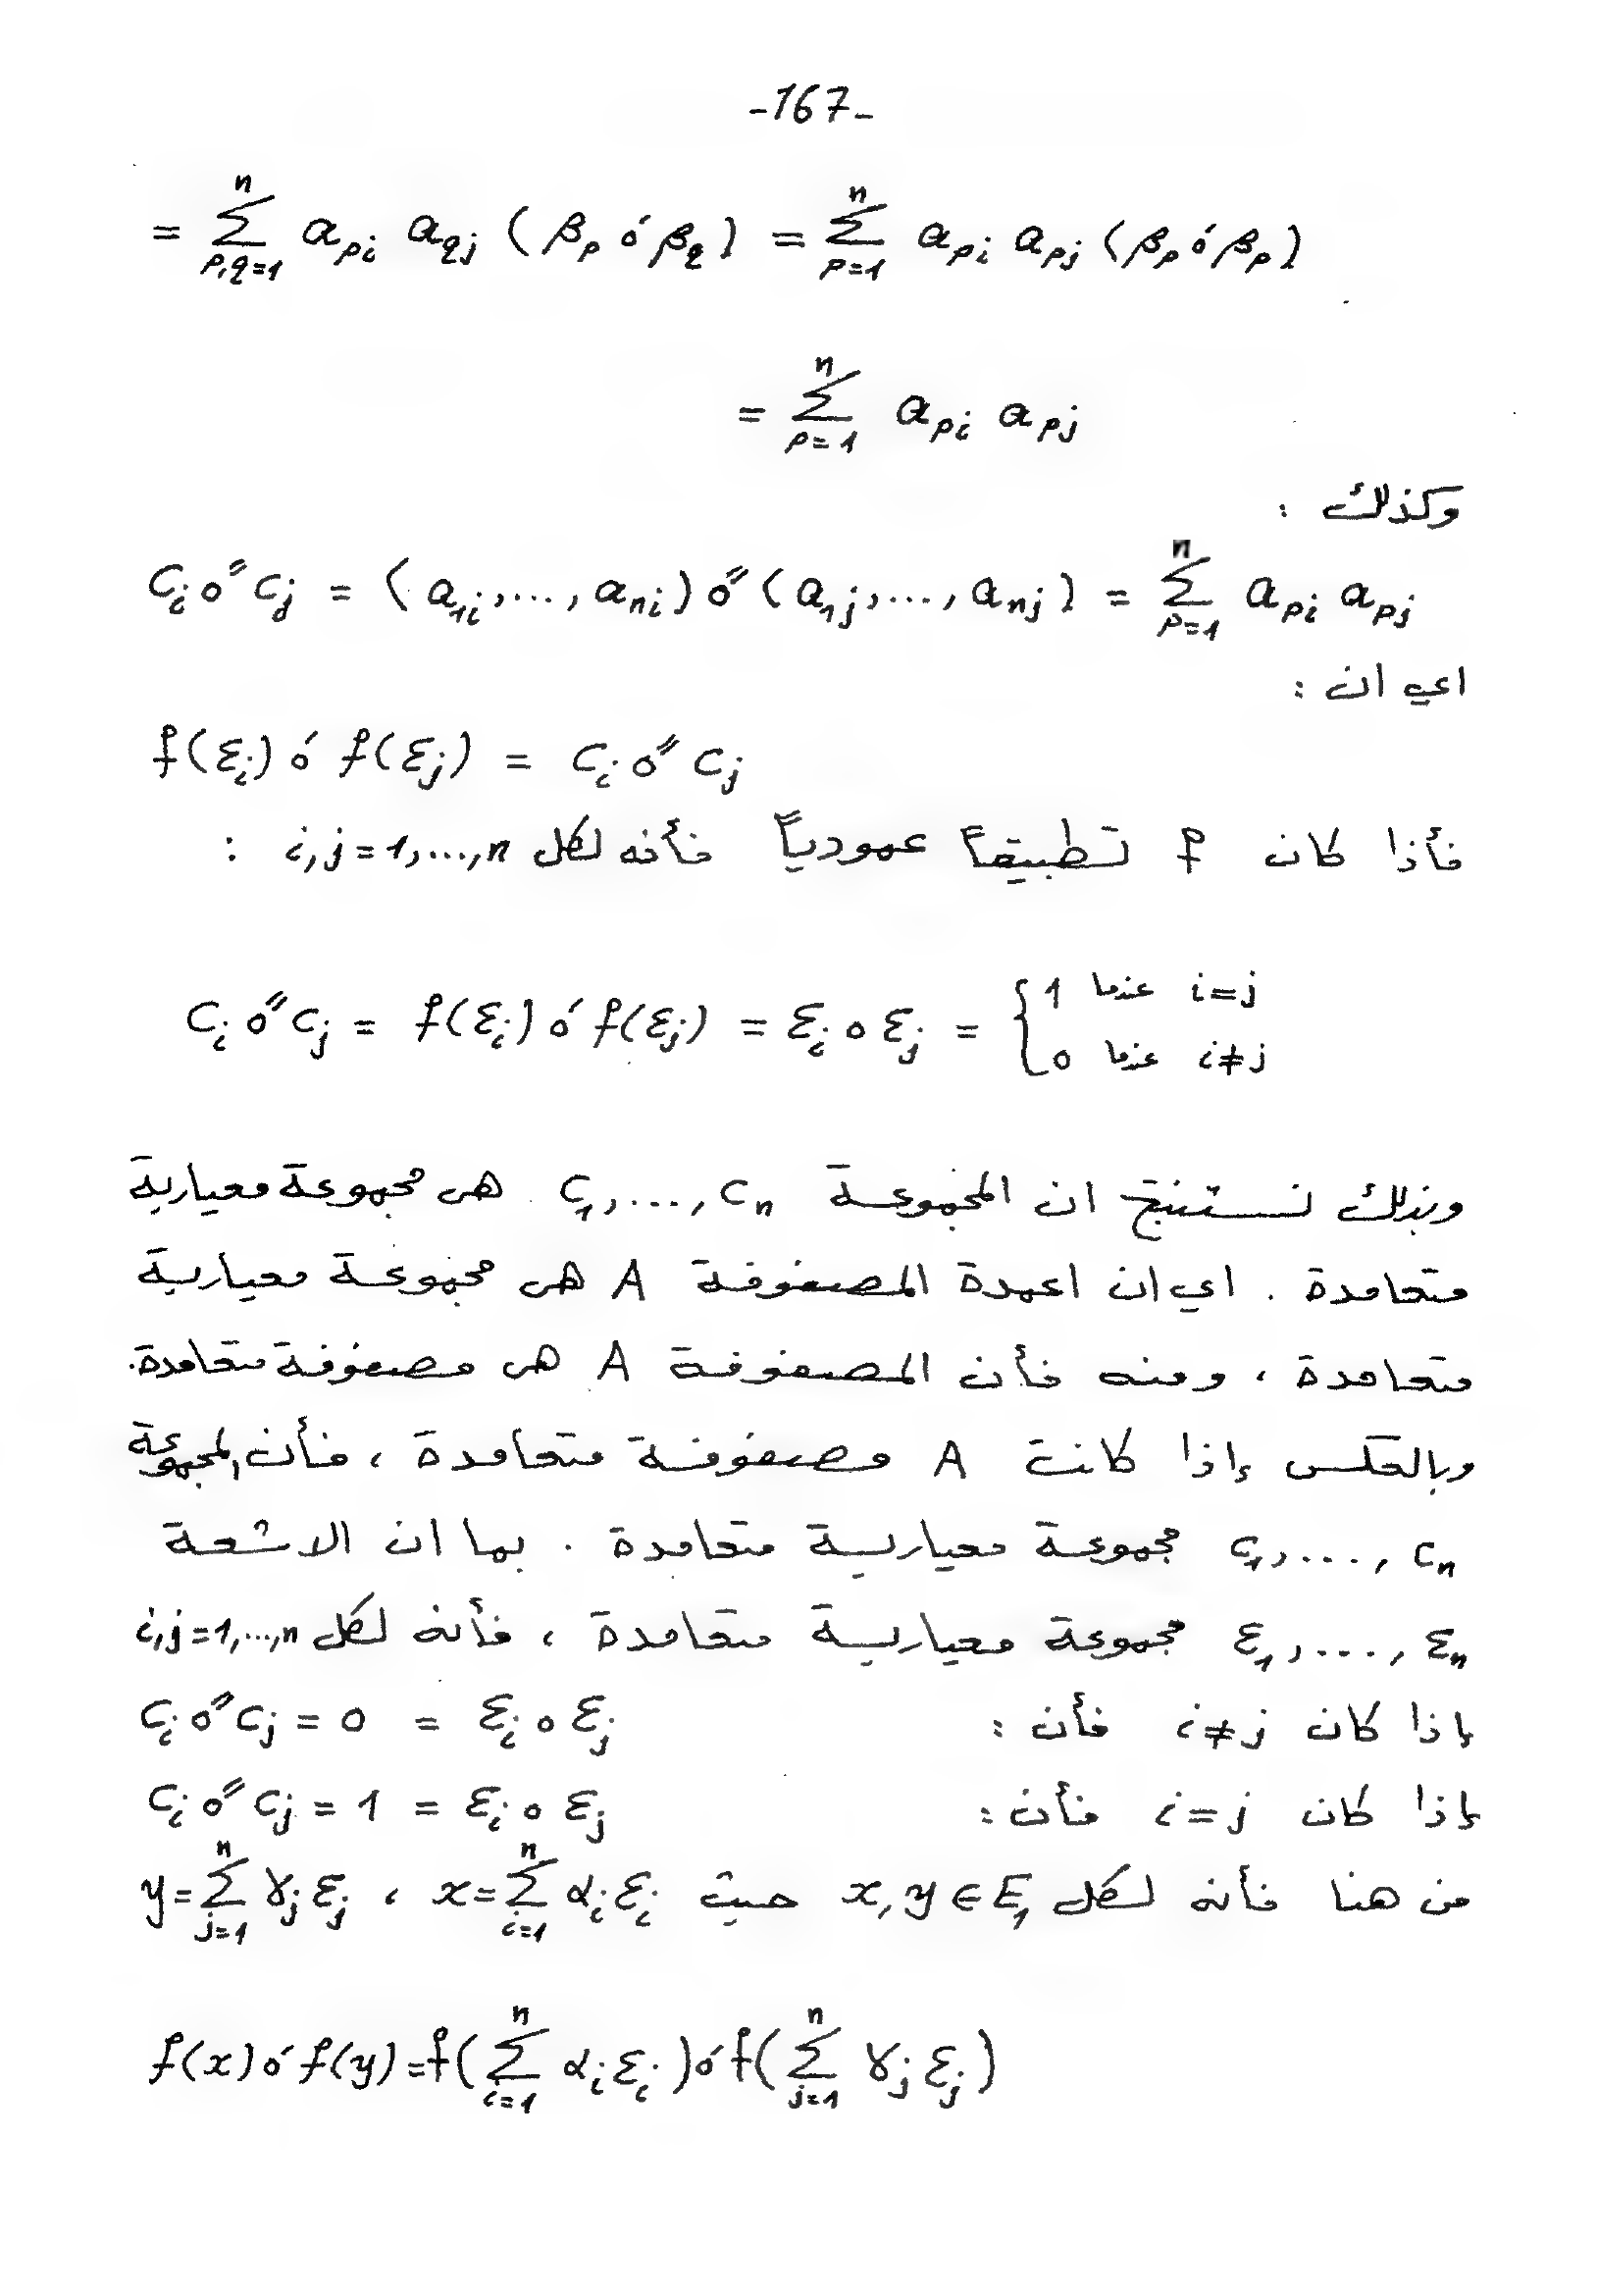 -167-
= \sum_{p,q=1}^{n} a_{pi} a_{qj} (β_p o' β_q) = \sum_{p=1}^{n} a_{pi} a_{pj} (β_p o' β_p)
= \sum_{p=1}^{n} a_{pi} a_{pj}
وكذلك :
C_i o'' C_j = (a_{1i}, ..., a_{ni}) o'' (a_{1j}, ..., a_{nj}) = \sum_{p=1}^{n} a_{pi} a_{pj}
اي ان :
f(ε_i) o' f(ε_j) = C_i o'' C_j
فأذا كان f تطبيقاً عمودياً فأنه لكل i,j=1,...,n :
C_i o'' C_j = f(ε_i) o' f(ε_j) = ε_i o ε_j = { 1 عندما i=j
0 عندما i≠j
وبذلك نستنتج ان المجموعة C_1, ..., C_n هي مجموعة معيارية
متعامدة . اي ان اعمدة المصفوفة A هي مجموعة معيارية
متعامدة ، ومنه فأن المصفوفة A هي مصفوفة متعامدة.
وبالعكس إذا كانت A مصفوفة متعامدة ، فأن المجموعة
C_1, ..., C_n مجموعة معيارية متعامدة . بما ان الاشعة
ε_1, ..., ε_n مجموعة معيارية متعامدة ، فأنه لكل i,j=1,...,n
إذا كان i≠j فأن : C_i o'' C_j = 0 = ε_i o ε_j
إذا كان i=j فأن : C_i o'' C_j = 1 = ε_i o ε_j
من هنا فأنه لكل x,y ∈ E_1 حيث x = \sum_{i=1}^{n} α_i ε_i ، y = \sum_{j=1}^{n} γ_j ε_j
f(x) o' f(y) = f(\sum_{i=1}^{n} α_i ε_i) o' f(\sum_{j=1}^{n} γ_j ε_j)